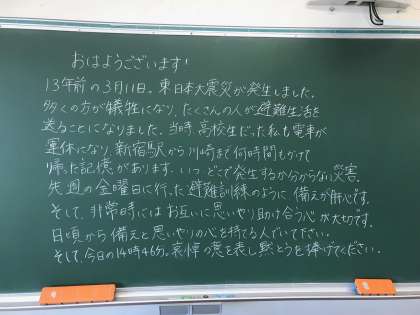 おはようございます!
13年前の3月11日。東日本大震災が発生しました。
多くの方が犠牲になり、たくさんの人が避難生活を
送ることになりました。当時、高校生だった私も電車が
運休になり、新宿駅から川崎まで何時間もかけて
帰った記憶があります。いつどこで発生するか分からない災害。
先週の金曜日に行った避難訓練のように備えが肝心です。
そして、非常時にはお互いに思いやり助け合う心が大切です。
日頃から備えと思いやりの心を持てる人でいて下さい。
そして、今日の14時46分。哀悼の意を表し黙とうを捧げてください。